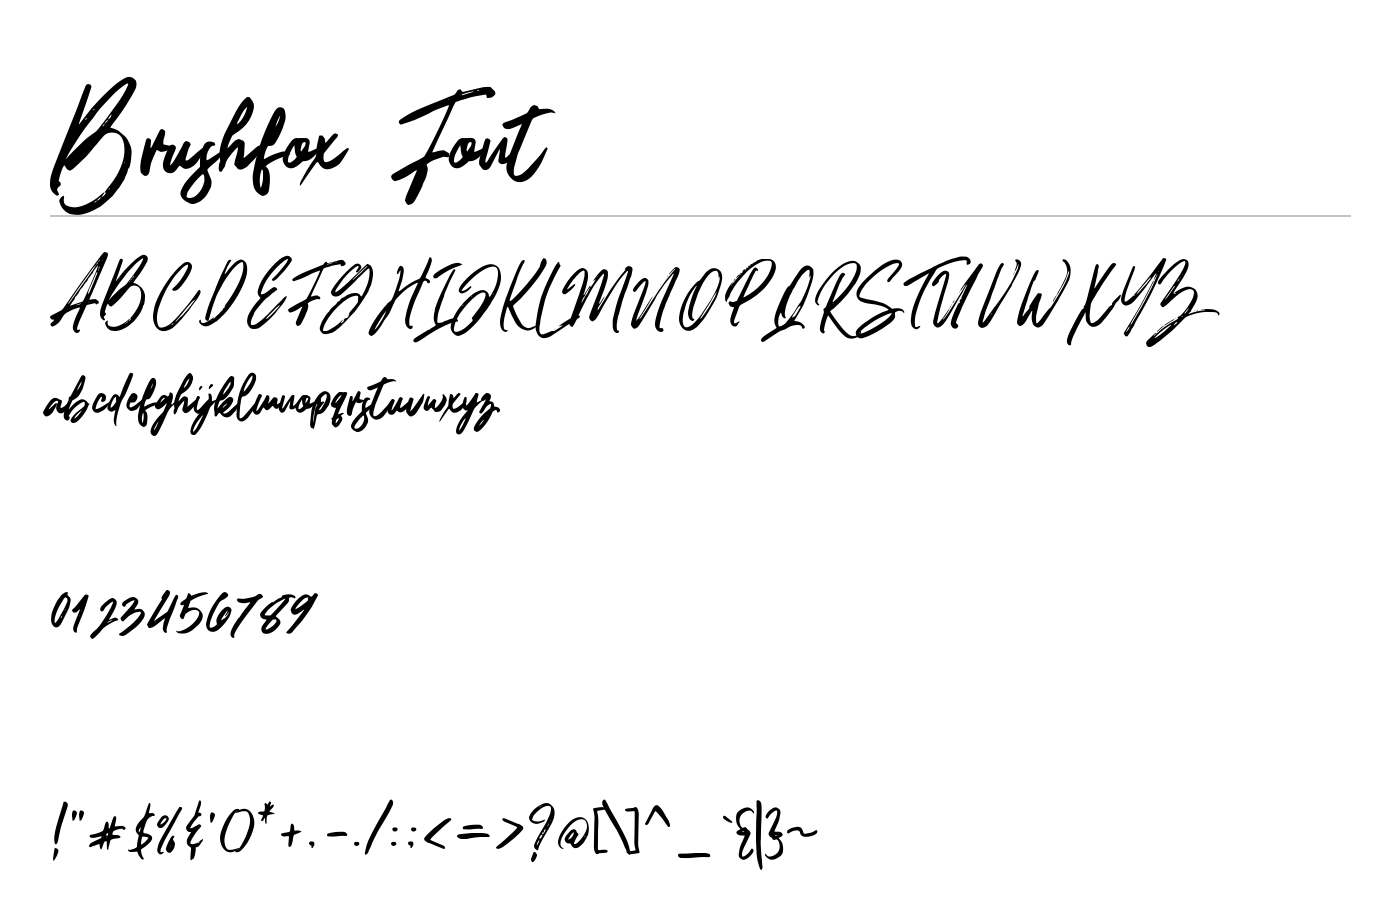 Brushfox Font
ABCDEFGHIJKLMNOPQRSTUVWXYZ
abcdefghijklmnopqrstuvwxyz
0123456789
!"#$%&'()*+,-./:;<=>?@[\]^_`{|}~